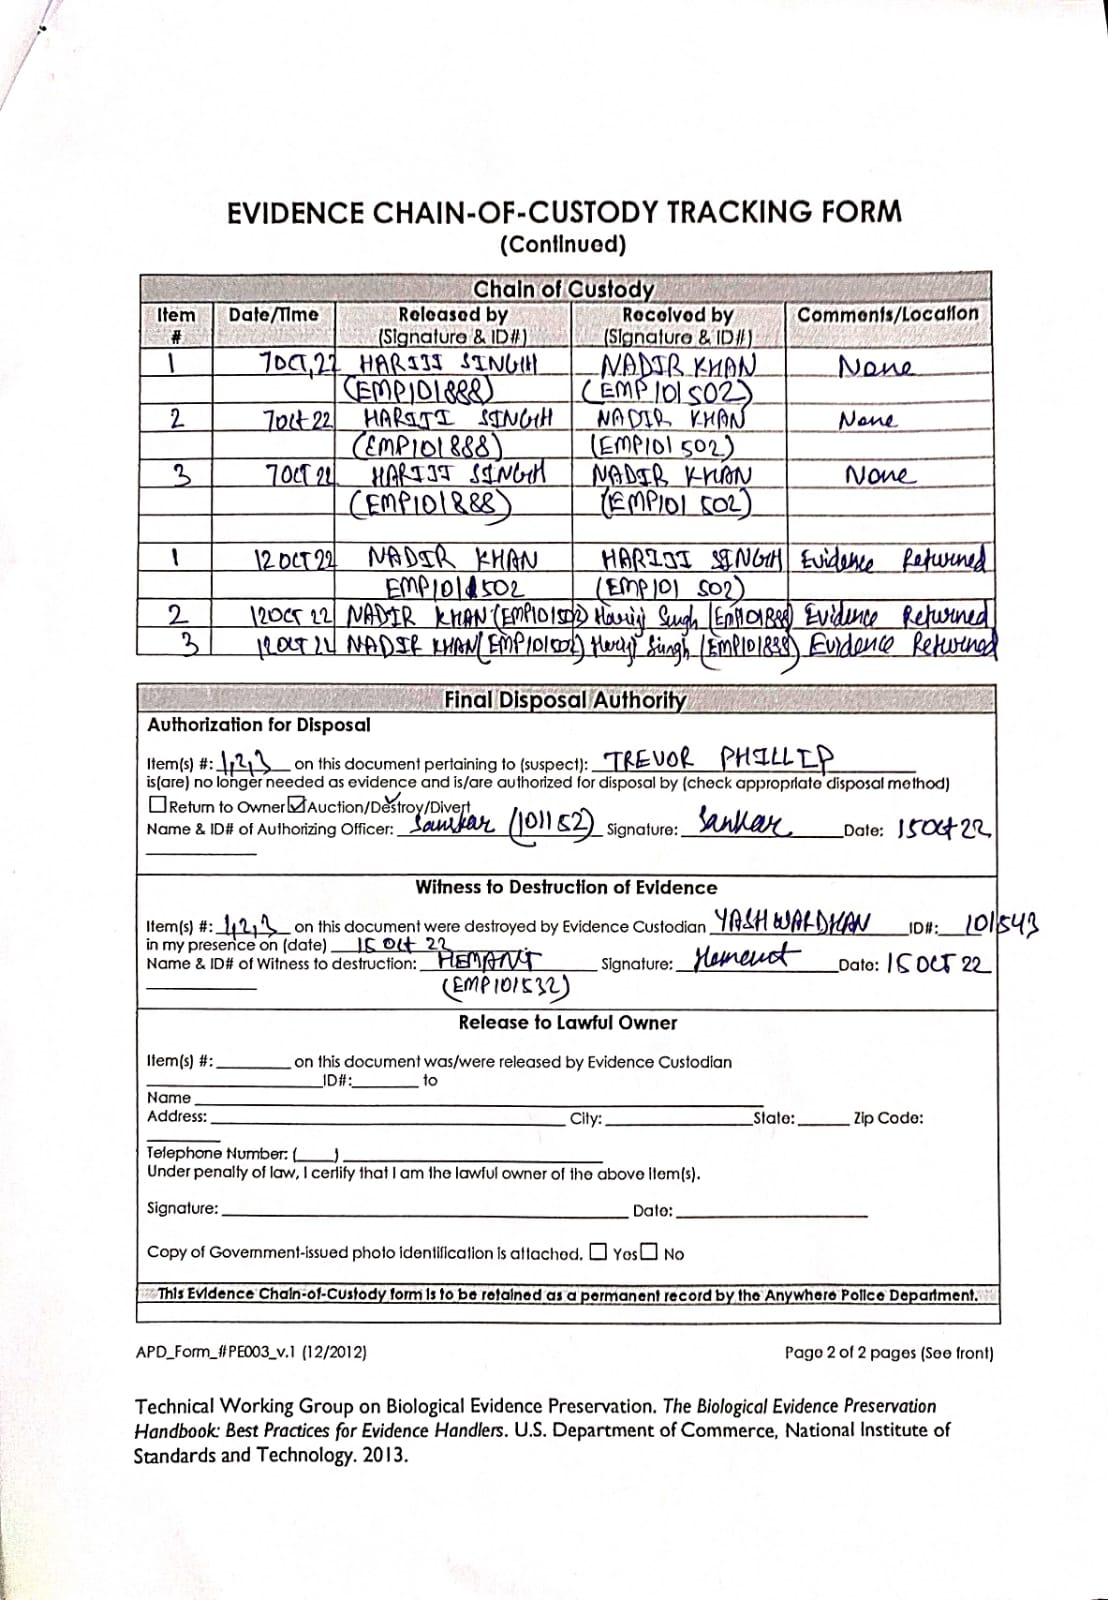 EVIDENCE CHAIN-OF-CUSTODY TRACKING FORM
(Continued)
Chain of Custody
Item # Date/Time Released by (Signature & ID#) Received by (Signature & ID#) Comments/Location
1 7OCT,22 HARIJI SINGH NADIR KHAN None
(EMP101888) (EMP101502)
2 7Oct 22 HARIJI SINGH NADIR KHAN None
(EMP101888) (EMP101502)
3 7OCT 22 HARIJI SINGH NADIR KHAN None
(EMP101888) (EMP101502)
1 12OCT22 NADIR KHAN HARIJI SINGH Evidence Returned
EMP101502 (EMP101502)
2 12OCT 22 NADIR KHAN (EMP101502) Hariji Singh (EMP101888) Evidence Returned
3 12OCT 22 NADIR KHAN (EMP101502) Hariji Singh (EMP101888) Evidence Returned
Final Disposal Authority
Authorization for Disposal
Item(s) #: 1,2,3 on this document pertaining to (suspect): TREVOR PHILLIP
is(are) no longer needed as evidence and is/are authorized for disposal by (check appropriate disposal method)
☐ Return to Owner ☑ Auction/Destroy/Divert
Name & ID# of Authorizing Officer: Sankar (101152) Signature: Sankar Date: 15Oct 22
Witness to Destruction of Evidence
Item(s) #: 1,2,3 on this document were destroyed by Evidence Custodian YASHWALDHAN ID#: 101543
in my presence on (date) 15 Oct 22
Name & ID# of Witness to destruction: HEMANT Signature: Hemant Date: 15 OCT 22
(EMP101532)
Release to Lawful Owner
Item(s) #: on this document was/were released by Evidence Custodian
ID#: to
Name
Address: City: State: Zip Code:
Telephone Number: ( )
Under penalty of law, I certify that I am the lawful owner of the above item(s).
Signature: Date:
Copy of Government-issued photo identification is attached. ☐ Yes ☐ No
This Evidence Chain-of-Custody form is to be retained as a permanent record by the Anywhere Police Department.
APD_Form_#PE003_v.1 (12/2012) Page 2 of 2 pages (See front)
Technical Working Group on Biological Evidence Preservation. The Biological Evidence Preservation
Handbook: Best Practices for Evidence Handlers. U.S. Department of Commerce, National Institute of
Standards and Technology. 2013.